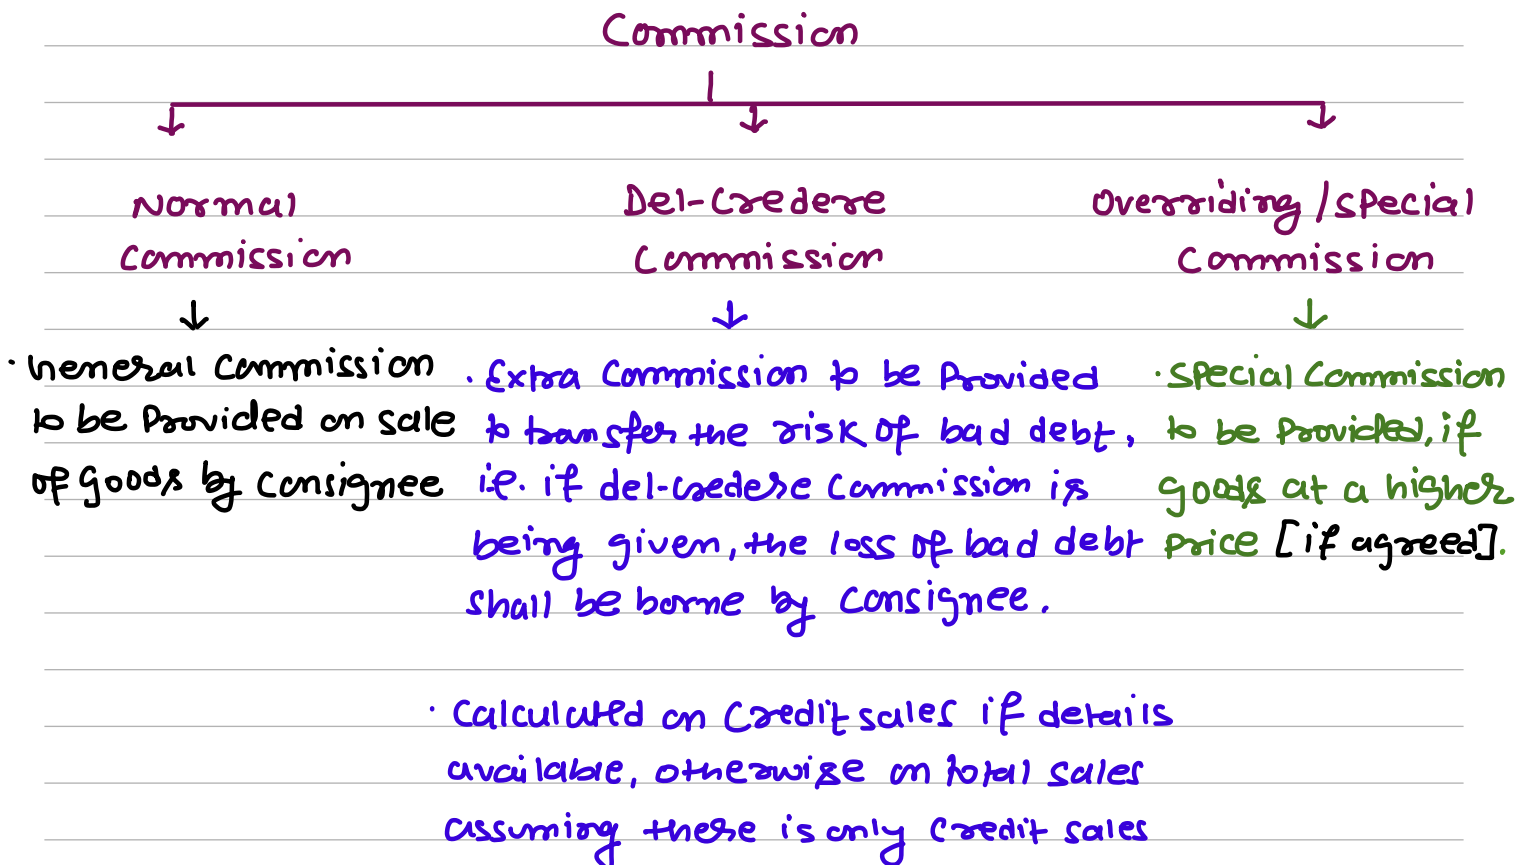 Commission
Normal
Commission
General Commission
to be Provided on sale
of goods by consignee
Del-Credere
Commission
· Extra Commission to be Provided
to transfer the risk of bad debt,
i.e. if del-credere Commission is
being given, the loss of bad debt
shall be borne by Consignee.
· Calculated on Credit sales if details
available, otherwise on total sales
assuming there is only credit sales
Overriding/special
Commission
· special Commission
to be Provided, if
goods at a higher
Price [if agreed].